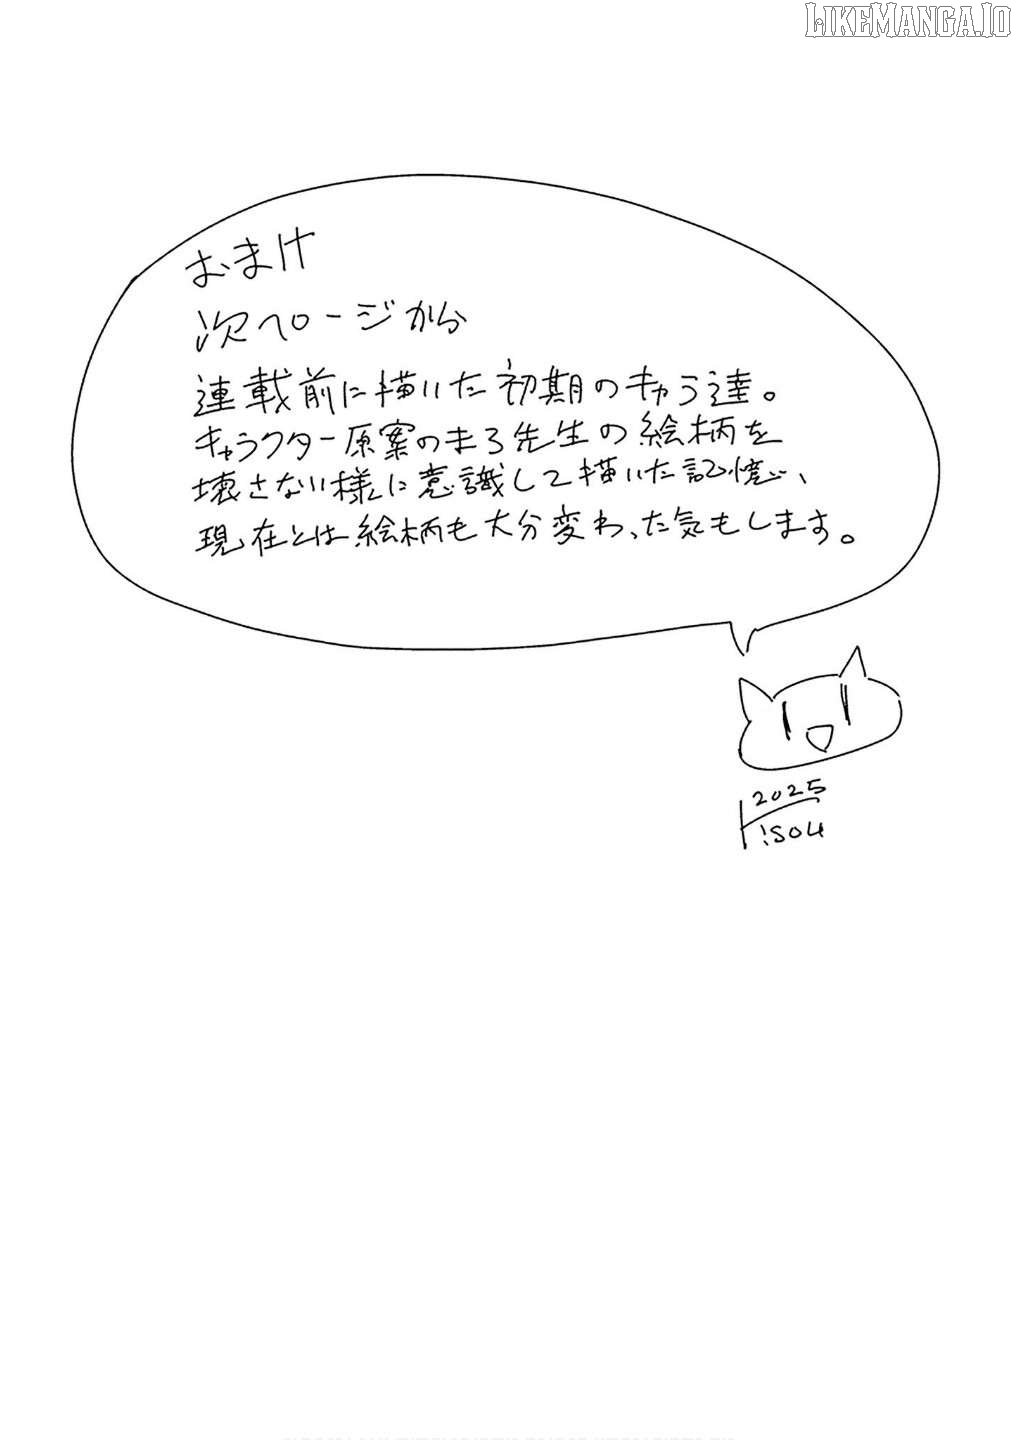 LIKEMANGA.IO
おまけ
次ページから
連載前に描いた初期のキャラ達。
キャラクター原案のまろ先生の絵柄を
壊さない様に意識して描いた記憶、
現在とは絵柄も大分変わった気もします。
2025